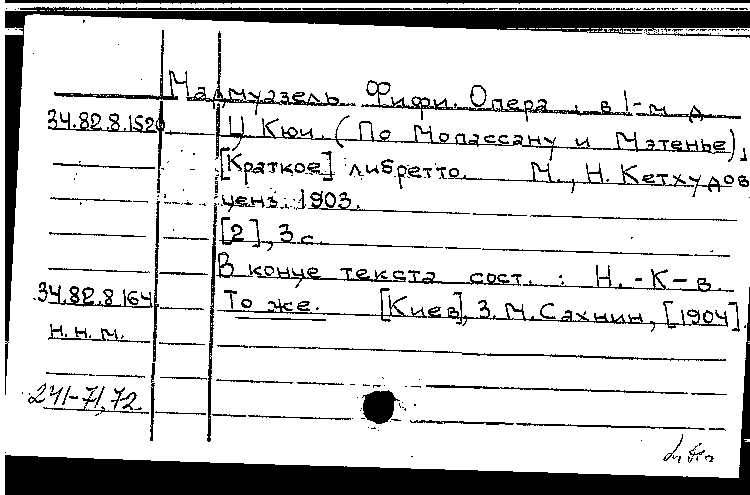 Мадмуазель Фифи. Опера, в 1-м д
34.82.8.1520 Ц Кюи. (По Мопассану и Мэтенье),
[Краткое] либретто. М., Н. Кетхудов
ценз. 1903.
[2], 3 с.
В конце текста сост.: Н.-К-в.
34.82.8.164 То же. [Киев], З.М. Сахнин, [1904].
Н.Н.М.
241-71,72